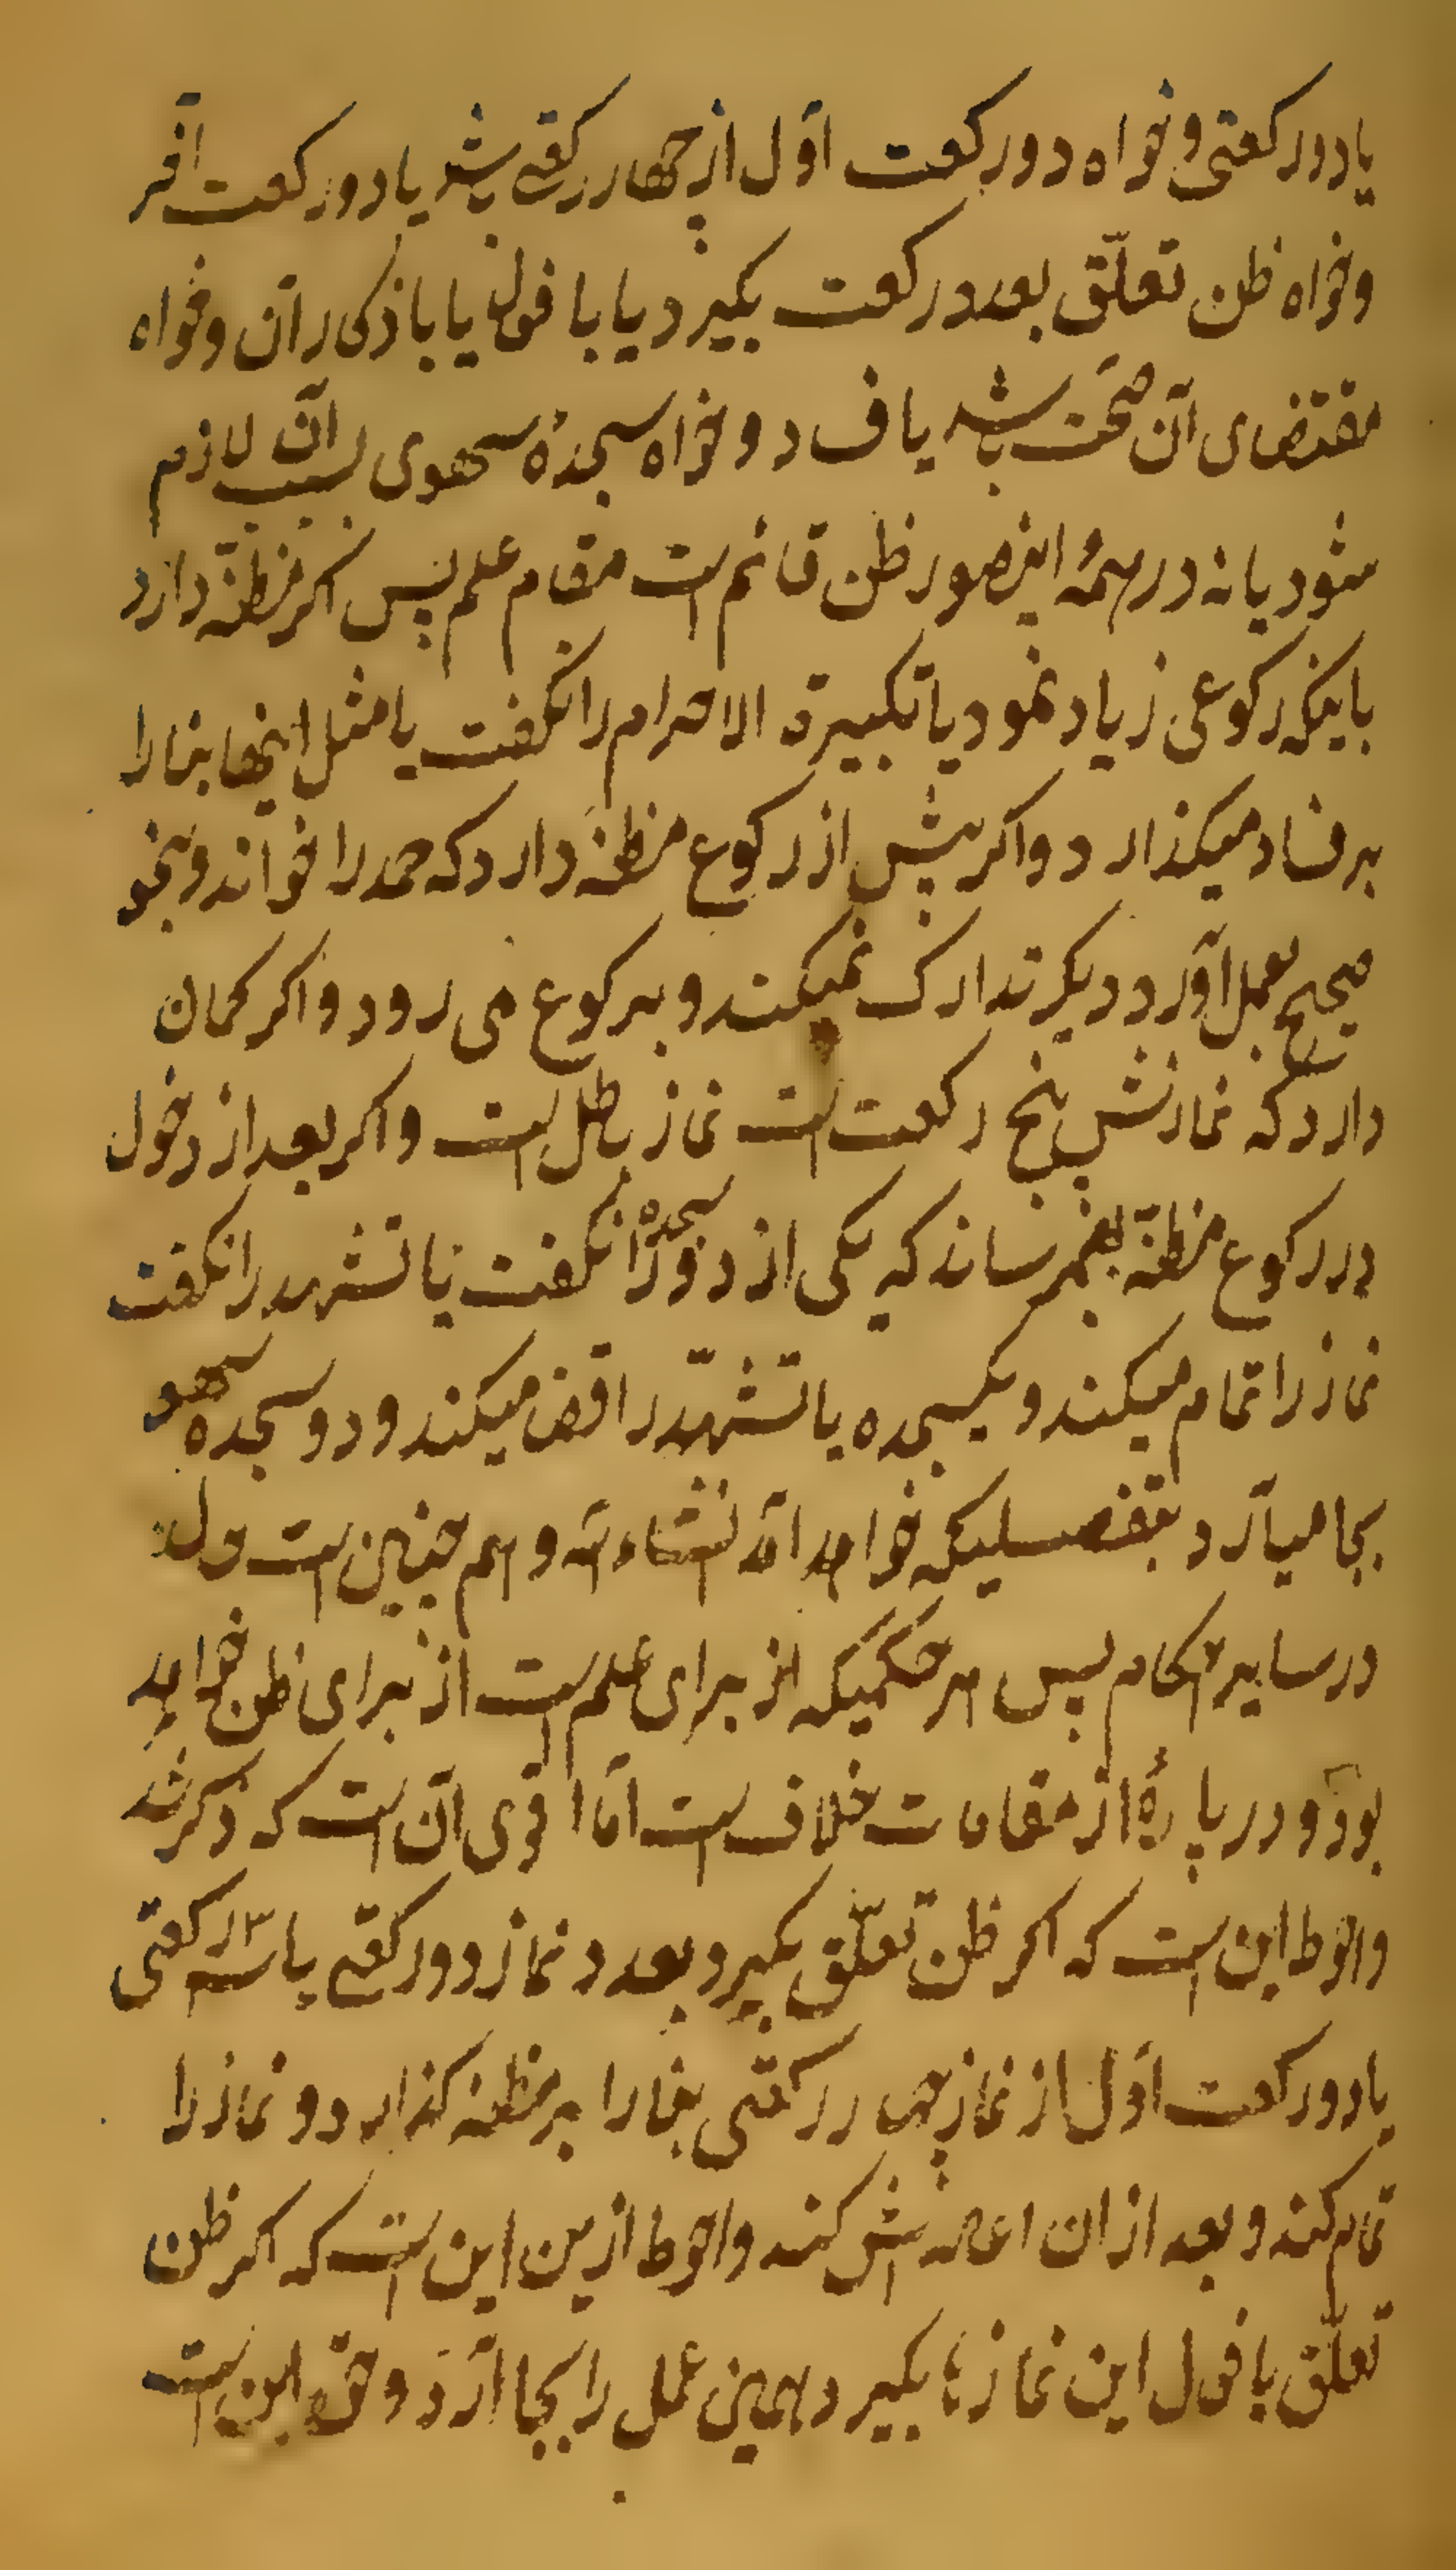 یا دو رکعتی و خواه دو رکعت اوّل از چهار رکعتی باشد یا دو رکعت آخر
و خواه ظن تعلّق بعدد رکعت بگیرد یا بافعال یا باذکار آن و خواه
مقتضای آن صحّت باشد یا فساد و خواه سجدهٔ سهوی بسبب آن لازم
شود یا نه در همهٔ این صور ظن قائم است مقام علم پس اگر مظنّه دارد
باینکه رکوعی زیاد نمود یا تکبیرة الاحرام را نگفت یا مثل اینها بنا را
بر فساد میگذارد و اگر پیش از رکوع مظنّه دارد که حمد را خوانده و بنحو
صحیح بعمل آورد دیگر تدارک نمیکند و برکوع می رود و اگر گمان
دارد که نمازش پنج رکعت است نماز باطل است و اگر بعد از دخول
در رکوع مظنّه بهمرساند که یکی از دو سجده را نگفت یا تشهد را نگفت
نماز را تمام میکند و یکسجده یا تشهّد را قضا میکند و دو سجده سهو
بجا میآرد بتفصیلیکه خواهد آمد انشاءالله و هم چنین است
در سایر احکام پس هر حکمیکه از برای علم است از برای ظن خواهد
بود و در پارهٔ از مقامات خلاف است امّا اقوی آن است که ذکر شد
و احوط این است که اگر ظن تعلّق بگیرد بعدد نماز دو رکعتی یا سه رکعتی
یا دو رکعت اوّل از نماز چهار رکعتی بنا را بر مظنّه گذارد و نماز را
تمام کند و بعد از ان اعاده اش کند و احوط ازین این است که اگر ظن
تعلّق بافعال این نمازها بگیرد همین عمل را بجا آرد و حق این است